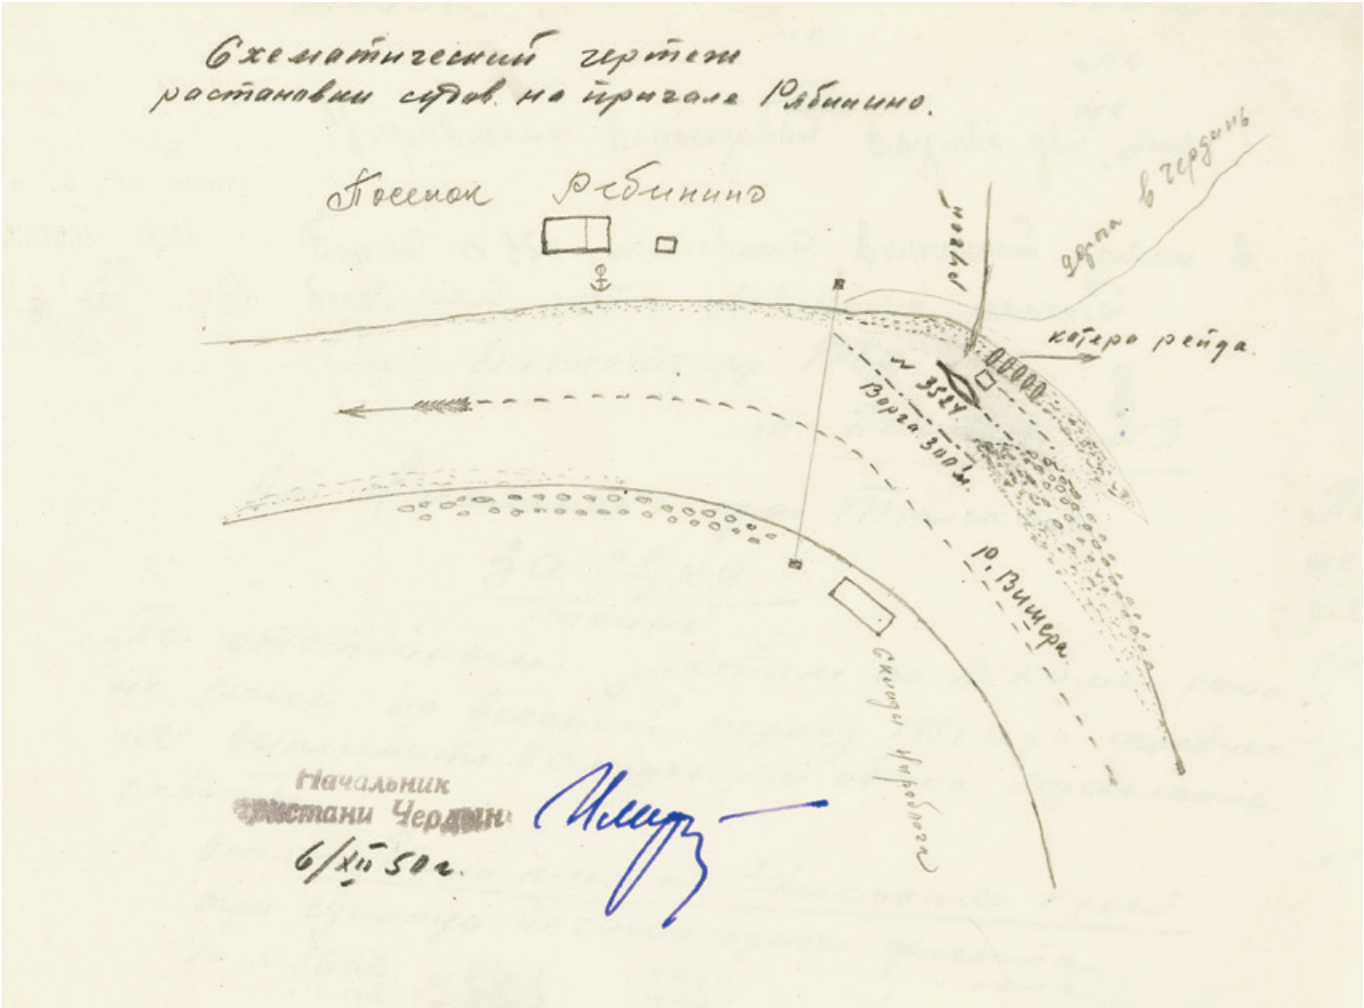 Схематический чертеж
растановки судов на причале Рябинино.
Поселок Рябинино
в Чердынь
катера рейда
~ 3524
Ворга 300 м.
р. Вишера
Склады Ныроблага
Начальник
пристани Чердынь
6/XII 50 г.